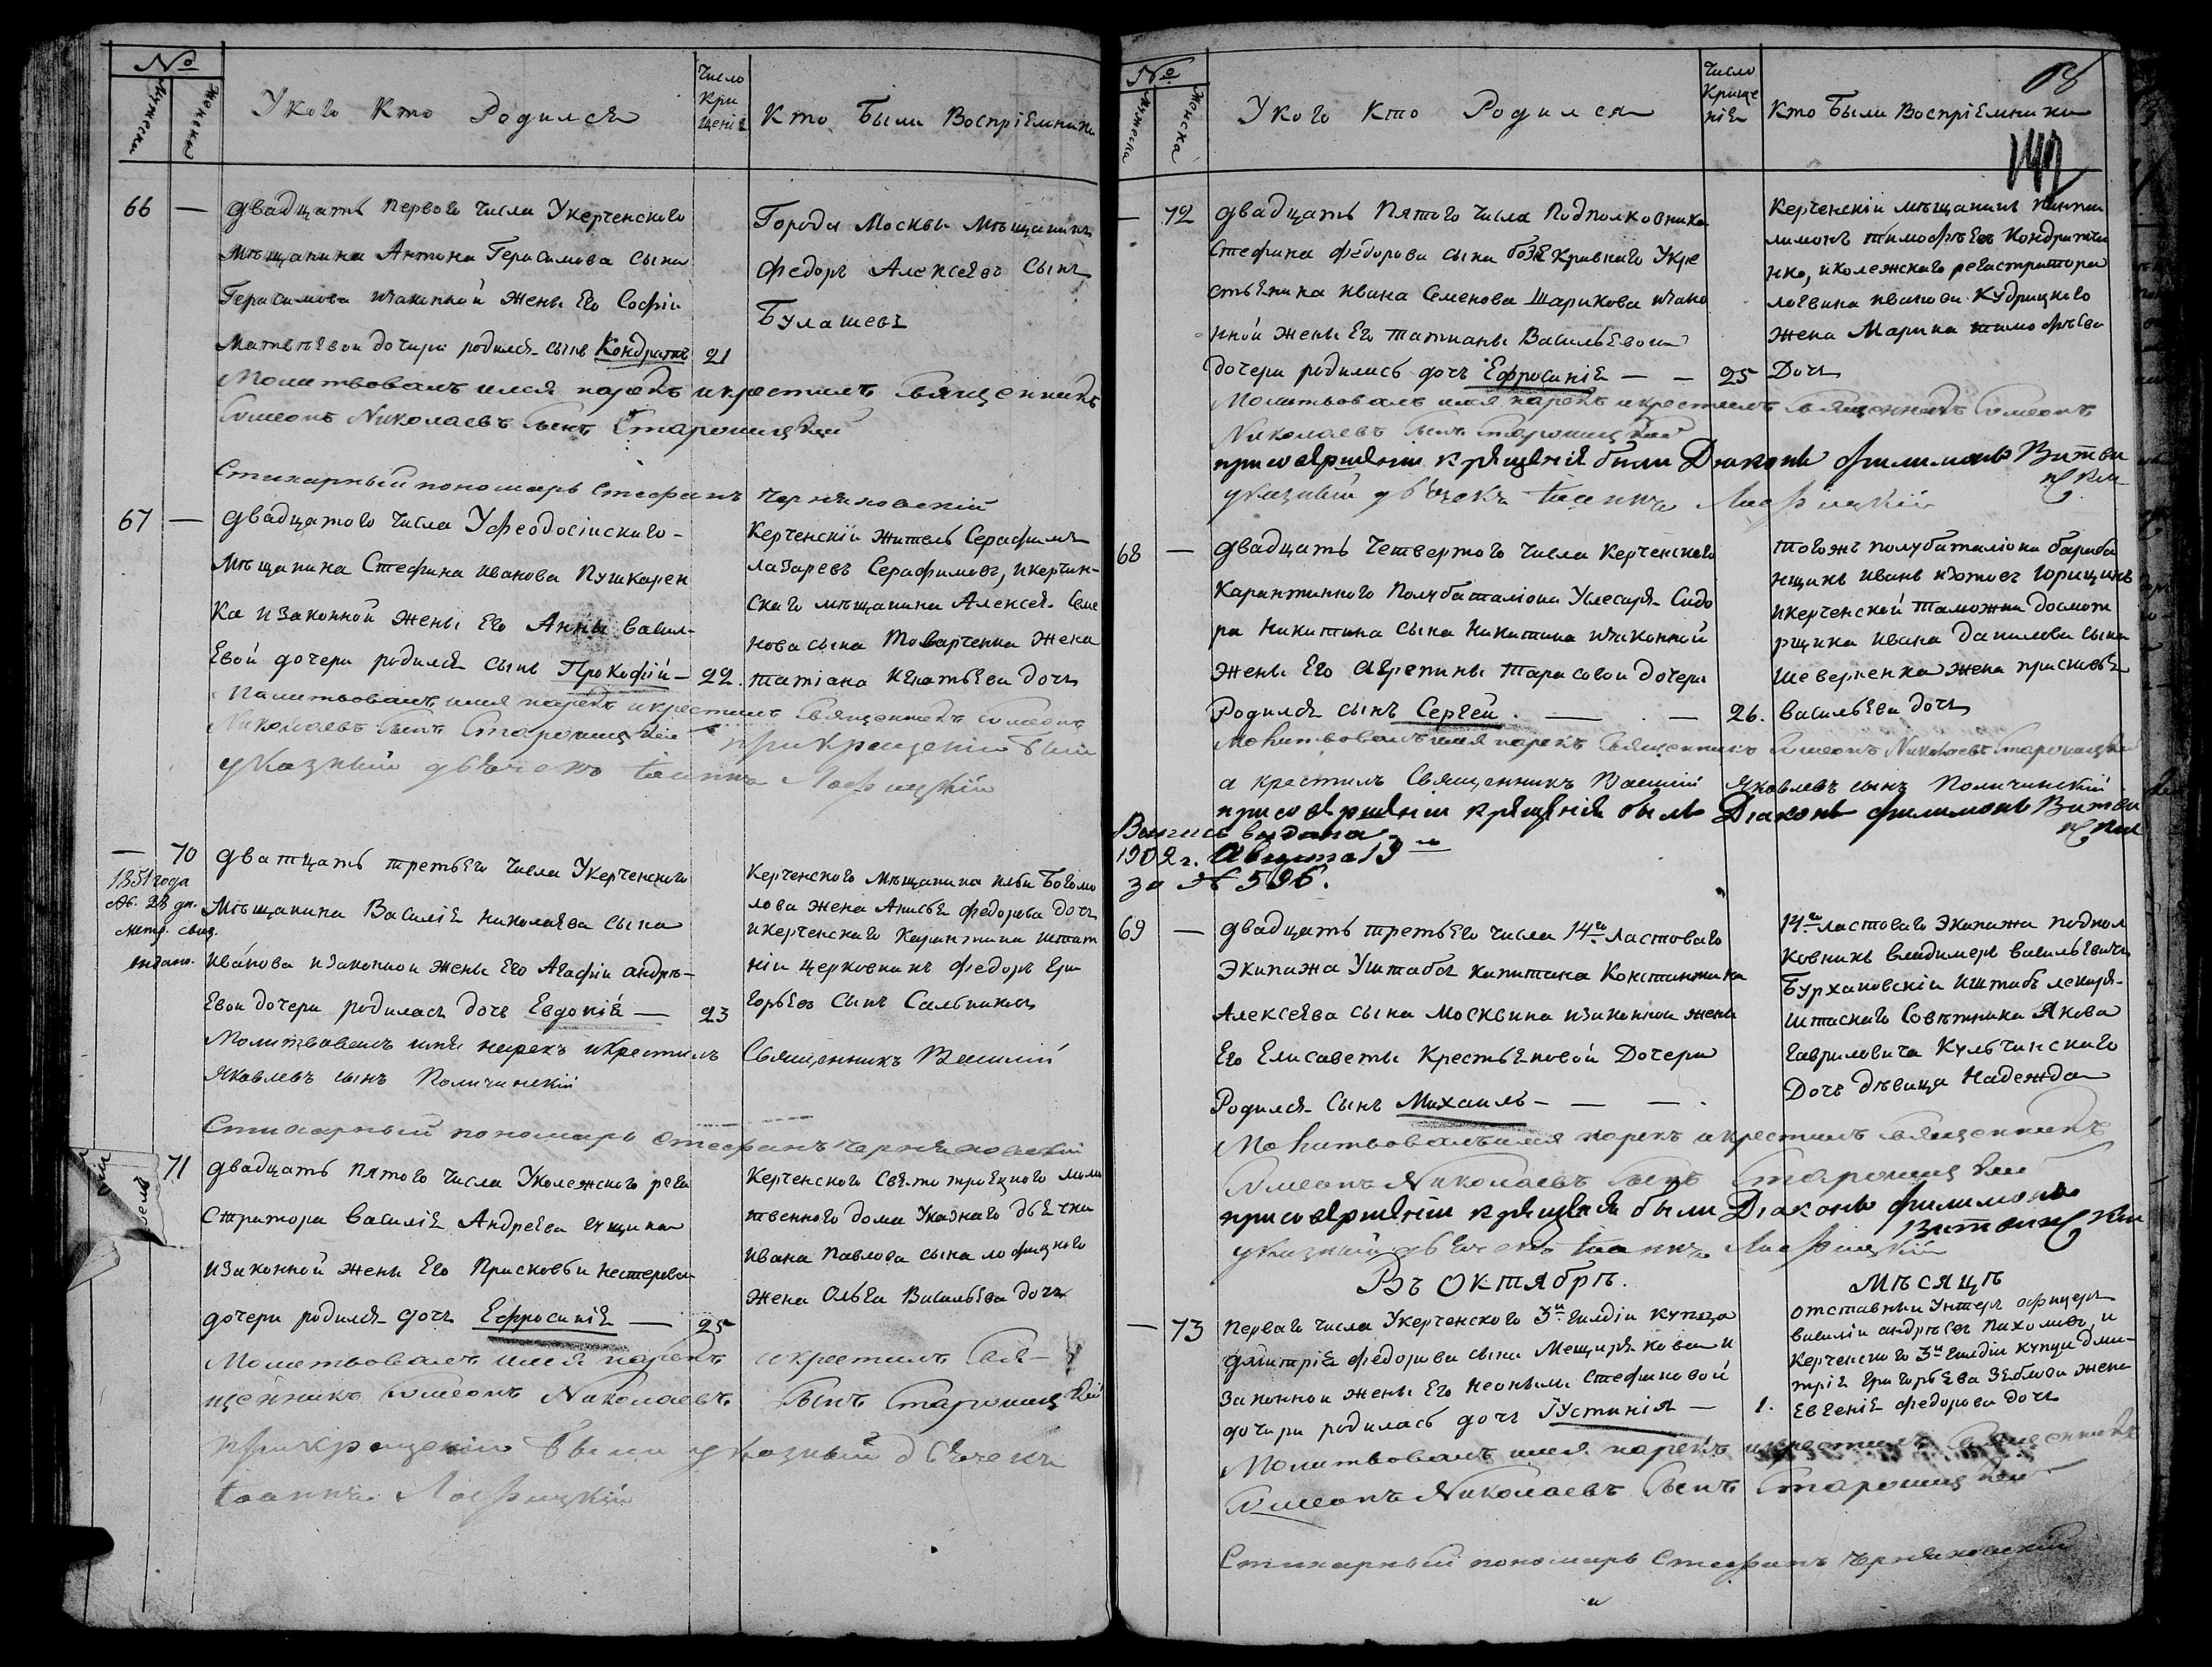 №
Мужеска
Женска
У кого Кто Родился
Число Кри щенія
Кто Были Воспріемники
66 —
двадцать первого числа У керченского
мѣщанина Антона Герасимова сына
Герасимова изаконной жены Его Софіи
Матвѣевой дочери родился сынъ Кондратъ 21
Города Москвы мѣщанинъ
Федоръ Алексѣевъ сынъ
Булашевъ
Молитвовалъ имя нарекъ икрестилъ Священникъ
Симеонъ Николаевъ Сынъ
Стихарный пономарь Стефанъ Черняховскій
67 —
двадцатого числа У феодосійского
мѣщанина Стефана Иванова Пушкарен
ка изаконной жены Его Анны васил-
Евой дочери родился сынъ Прокофій — 22.
Керченскій житель Серафимъ
лазаревъ Серафимовъ, икерчин-
скаго мѣщанина Алексея Семе
нова сына Товарченка жена
татіана игнатьева дочь
Молитвовалъ имя нарекъ икрестилъ Священникъ Симеонъ
Николаевъ Сынъ
при Крещеніи были
указный дьячекъ Іоаннъ Лофицкій
— 70
1851 года
Ав. 28 дн.
метр. свид.
выдано.
дватцать третьего числа У керченского
мѣщанина Василія николаева сына
иванова изаконной жены Его Агафіи андрѣ-
Евой дочери родилась дочь Евдокія — 23
Керченского мѣщанина ильи Богомо
лова жена Анисья федорова дочь
икерченскаго карантина штат
ній церковникъ федоръ Гри
горьевъ сынъ Сальников
Молитвовалъ имя нарекъ икрестилъ Священникъ Василій
Яковлевъ сынъ Поличинскій
Стихарный пономарь Стефанъ Черняховскій
71
двадцать пятого числа У колежского реги
стратора василія Андреева
изаконной жены Его Прасковьи нестеровой
дочери родился дочь Ефросинія — 25
Керченского Свято троецкого моли
твенного дома Указнаго дьячка
ивана павлова сына лофицкого
жена Ольга Васильева дочь
Молитвовалъ имя нарекъ икрестилъ Свя-
щенникъ Симеонъ Николаевъ Сынъ
при крещеніи были указный дьячекъ
Іоаннъ Лофицкій
№
Мужеска
Женска
У кого Кто Родился
Число Креще нія
Кто Были Воспріемники
— 72
двадцать пятого числа Подполковника
Стефана Федорова сына Кравнаго У кре
стьянина ивана Семенова Шарикова изако
нной жены Его татианы Васильевой
дочери родилась дочь Ефросинія — — 25
Керченскій мѣщанинъ панте
лимонъ тимофѣевъ Кондратче
нко, и колежского регистратора
логвина иванова Кудрицкого
жена Марина тимофѣева
Дочь
Молитвовалъ имя нарекъ икрестилъ Священникъ Симеонъ
Николаевъ сынъ
при совершеніи крещенія были Діаконъ Филимонъ
указный дьячекъ Іоаннъ Лофицкій
68 —
двадцать четвертого числа керченского
Карантинного Полубаталіона У слесаря Сидо
ра никитина сына никитина изаконной
жены Его Агрепины тарасовой дочери
Родился сынъ Сергей. — . — 26.
того жъ полубаталіона бараба
нщикъ иванъ Юрищинъ
икерченской таможни досмот
рщика ивана данилова сына
Шеверненка жена прасковья
васильева дочь
Молитвовалъ имя нарекъ Священникъ Симеонъ Николаевъ
а крестилъ Священникъ Василій Яковлевъ сынъ Поличинскій
при совершеніи крещенія были Діаконъ Филимонъ
Выпись выдана
1902 г. Августа 13
за № 596.
69 —
двадцать третьего числа 14го ластоваго
Экипажа У штабсъ капитана Константина
Алексѣева сына москвина изаконной жены
Его Елисаветы Крестьяновой Дочери
Родился сынъ Михаилъ — — — .
14го ластоваго Экипажа подпол
ковникъ владимеръ васильевичъ
Бурхановскій и штабъ лекаря
Штаскаго Совѣтника Якова
Гавриловича Кульчинскаго
Дочь дѣвица Надежда
Молитвовалъ имя нарекъ икрестилъ священникъ
Симеонъ Николаевъ Сынъ
при совершеніи крещенія были Діаконъ Филимонъ
указный дьячекъ Іоаннъ Лофицкій
Въ Октябрѣ. Мѣсяцѣ
— 73
Перваго числа У керченского 3й гилдіи купца
дмитрія федорова сына Мещерякова и
законной жены Его неонилы стефановой
дочери родилась дочь Іустинія — 1.
отставный Унтеръ офицеръ
василій андрѣевъ пахомовъ, и
Керченского 3й гилдіи купца дми-
трія григорьева Зяблова жена
Евгенія федорова дочь
Молитвовалъ имя нарекъ икрестилъ Священникъ
Симеонъ Николаевъ Сынъ
Стихарный пономарь Стефанъ Черняховскій